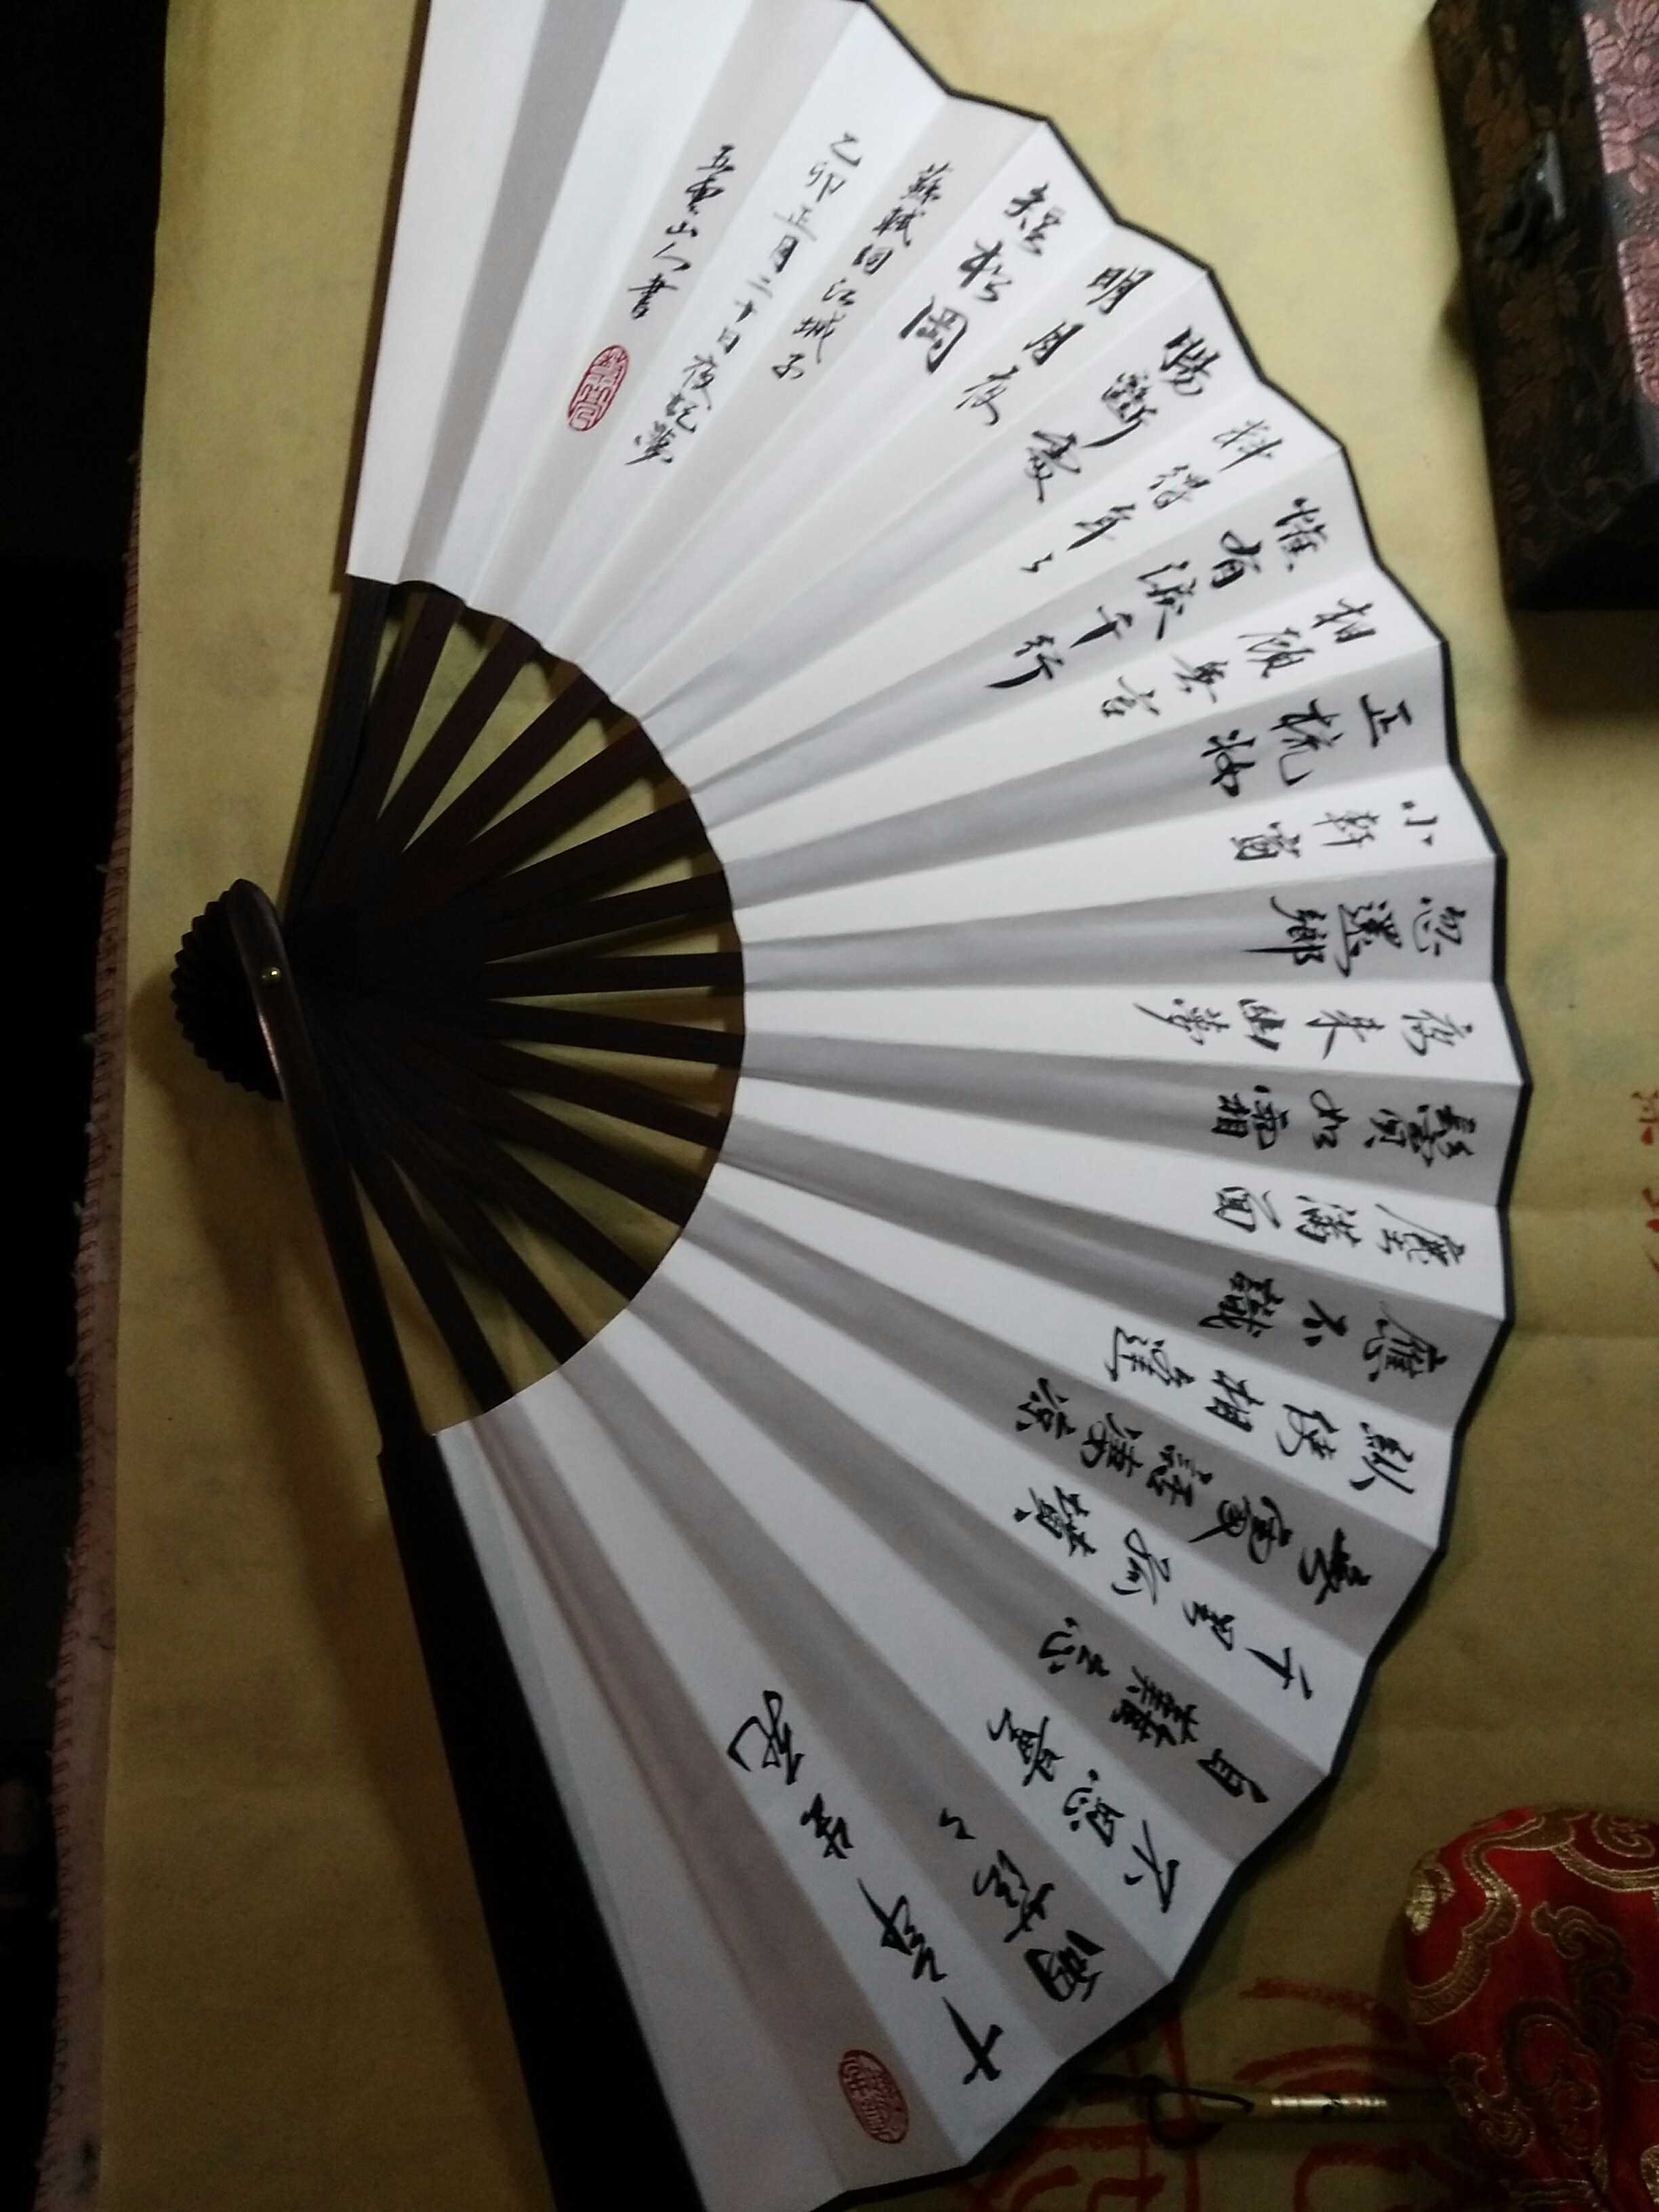 十年生死
兩茫〻
不思量
自難忘
千里孤墳
無處話凄涼
縱使相逢
應不識
塵滿面
鬢如霜
夜來幽夢
忽還鄉
小軒窗
正梳妝
相顧無言
惟有淚千行
料得年〻
腸斷處
明月夜
短松岡
蘇軾詞江城子
乙卯正月二十日夜記夢
五雲山人書